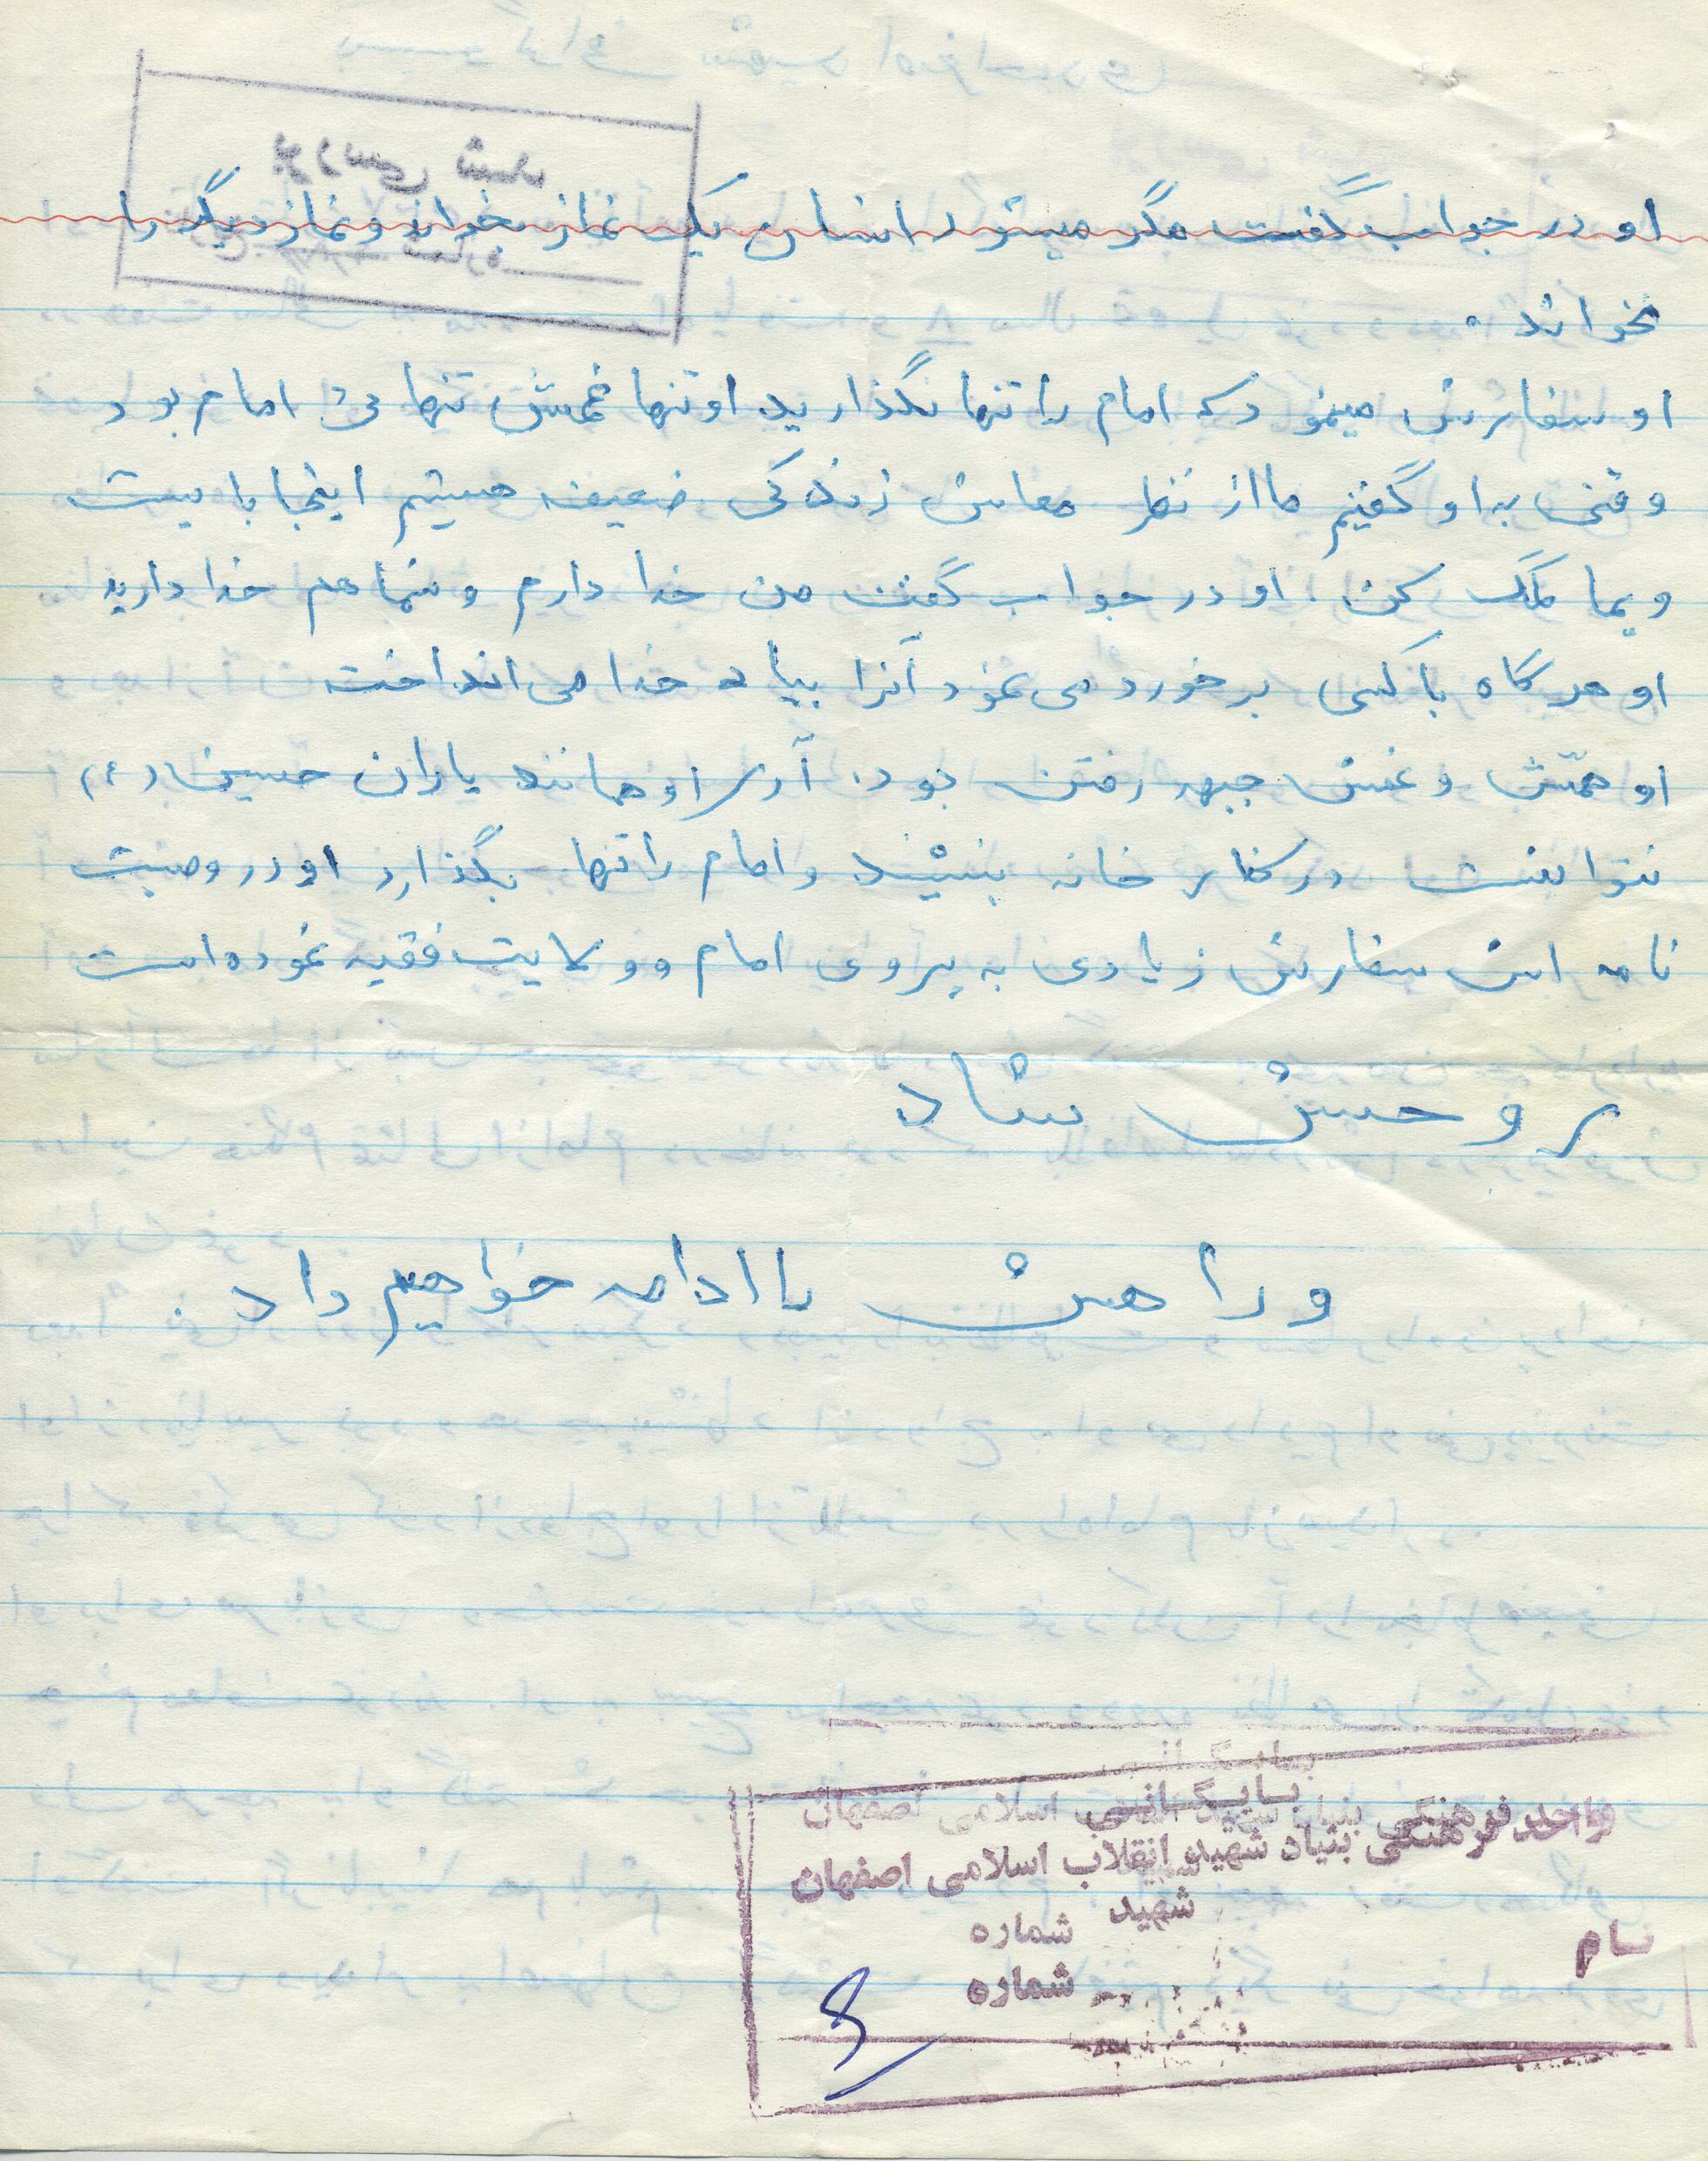 او در جواب گفت مگر میشود انسان یک نماز بخواند و نماز دیگر را
نخواند .
او سفارش مینمود که امام را تنها نگذارید او تنها غمش تنهائی امام بود
وقتی به او گفتیم ما از نظر معاش زندگی ضعیف هستیم اینجا بایست
و بما کمک کن . او در جواب گفت من خدا دارم و شما هم خدا دارید
او هرگاه با کسی برخورد می نمود آنرا بیاد خدا می انداخت
او همّتش و عشقش جبهه رفتن بود . آری او همانند یاران حسین (ع)
نتوانست در کنار خانه بنشیند و امام را تنها بگذارد او در وصیت
نامه اش سفارش زیادی به پیروی امام و ولایت فقیه نموده است
روحش شاد
و راهش را ادامه خواهیم داد .
بایگانی
واحد فرهنگی بنیاد شهید انقلاب اسلامی اصفهان
واحد فرهنگی بنیاد شهید انقلاب اسلامی اصفهان
نام شهید شماره
شماره